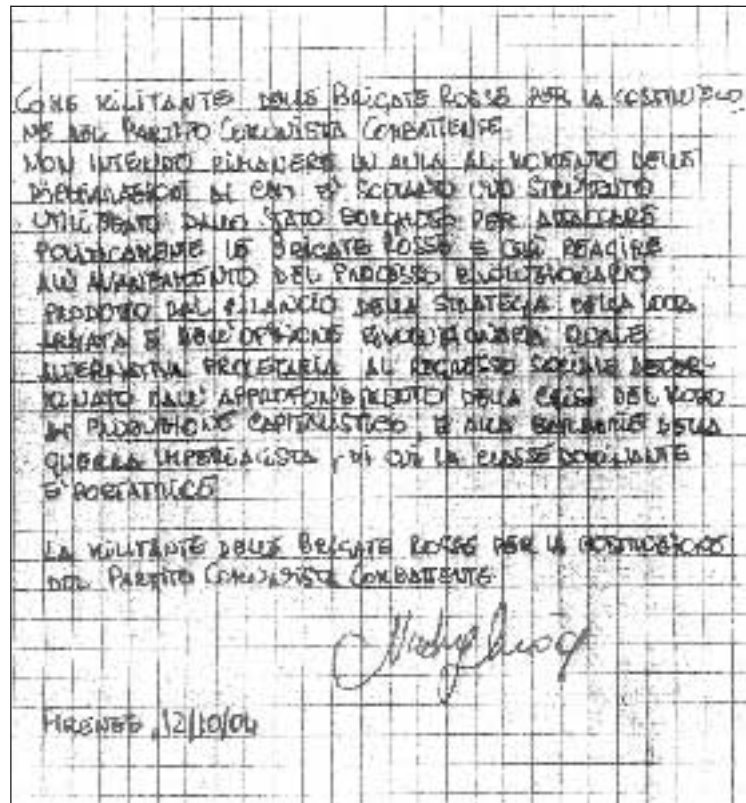 COME MILITANTE DELLE BRIGATE ROSSE PER LA COSTRUZIO
NE DEL PARTITO COMUNISTA COMBATTENTE
NON INTENDO RIMANERE IN AULA AL MOMENTO DELLE
DICHIARAZIONI DI CHI È SOLTANTO UNO STRUMENTO
UTILIZZATO DALLO STATO BORGHESE PER ATTACCARE
POLITICAMENTE LE BRIGATE ROSSE E COSÌ REAGIRE
ALL'AVANZAMENTO DEL PROCESSO RIVOLUZIONARIO
PRODOTTO DAL RILANCIO DELLA STRATEGIA DELLA LOTTA
ARMATA E DELL'OPZIONE RIVOLUZIONARIA QUALE
ALTERNATIVA PROLETARIA AL REGRESSO SOCIALE DETER-
MINATO DALL'APPROFONDIMENTO DELLA CRISI DEL MODO
DI PRODUZIONE CAPITALISTICO, E ALLA BARBARIE DELLA
GUERRA IMPERIALISTA, DI CUI LA CLASSE DOMINANTE
È PORTATRICE
LA MILITANTE DELLE BRIGATE ROSSE PER LA COSTRUZIONE
DEL PARTITO COMUNISTA COMBATTENTE
FIRENZE, 12/10/04